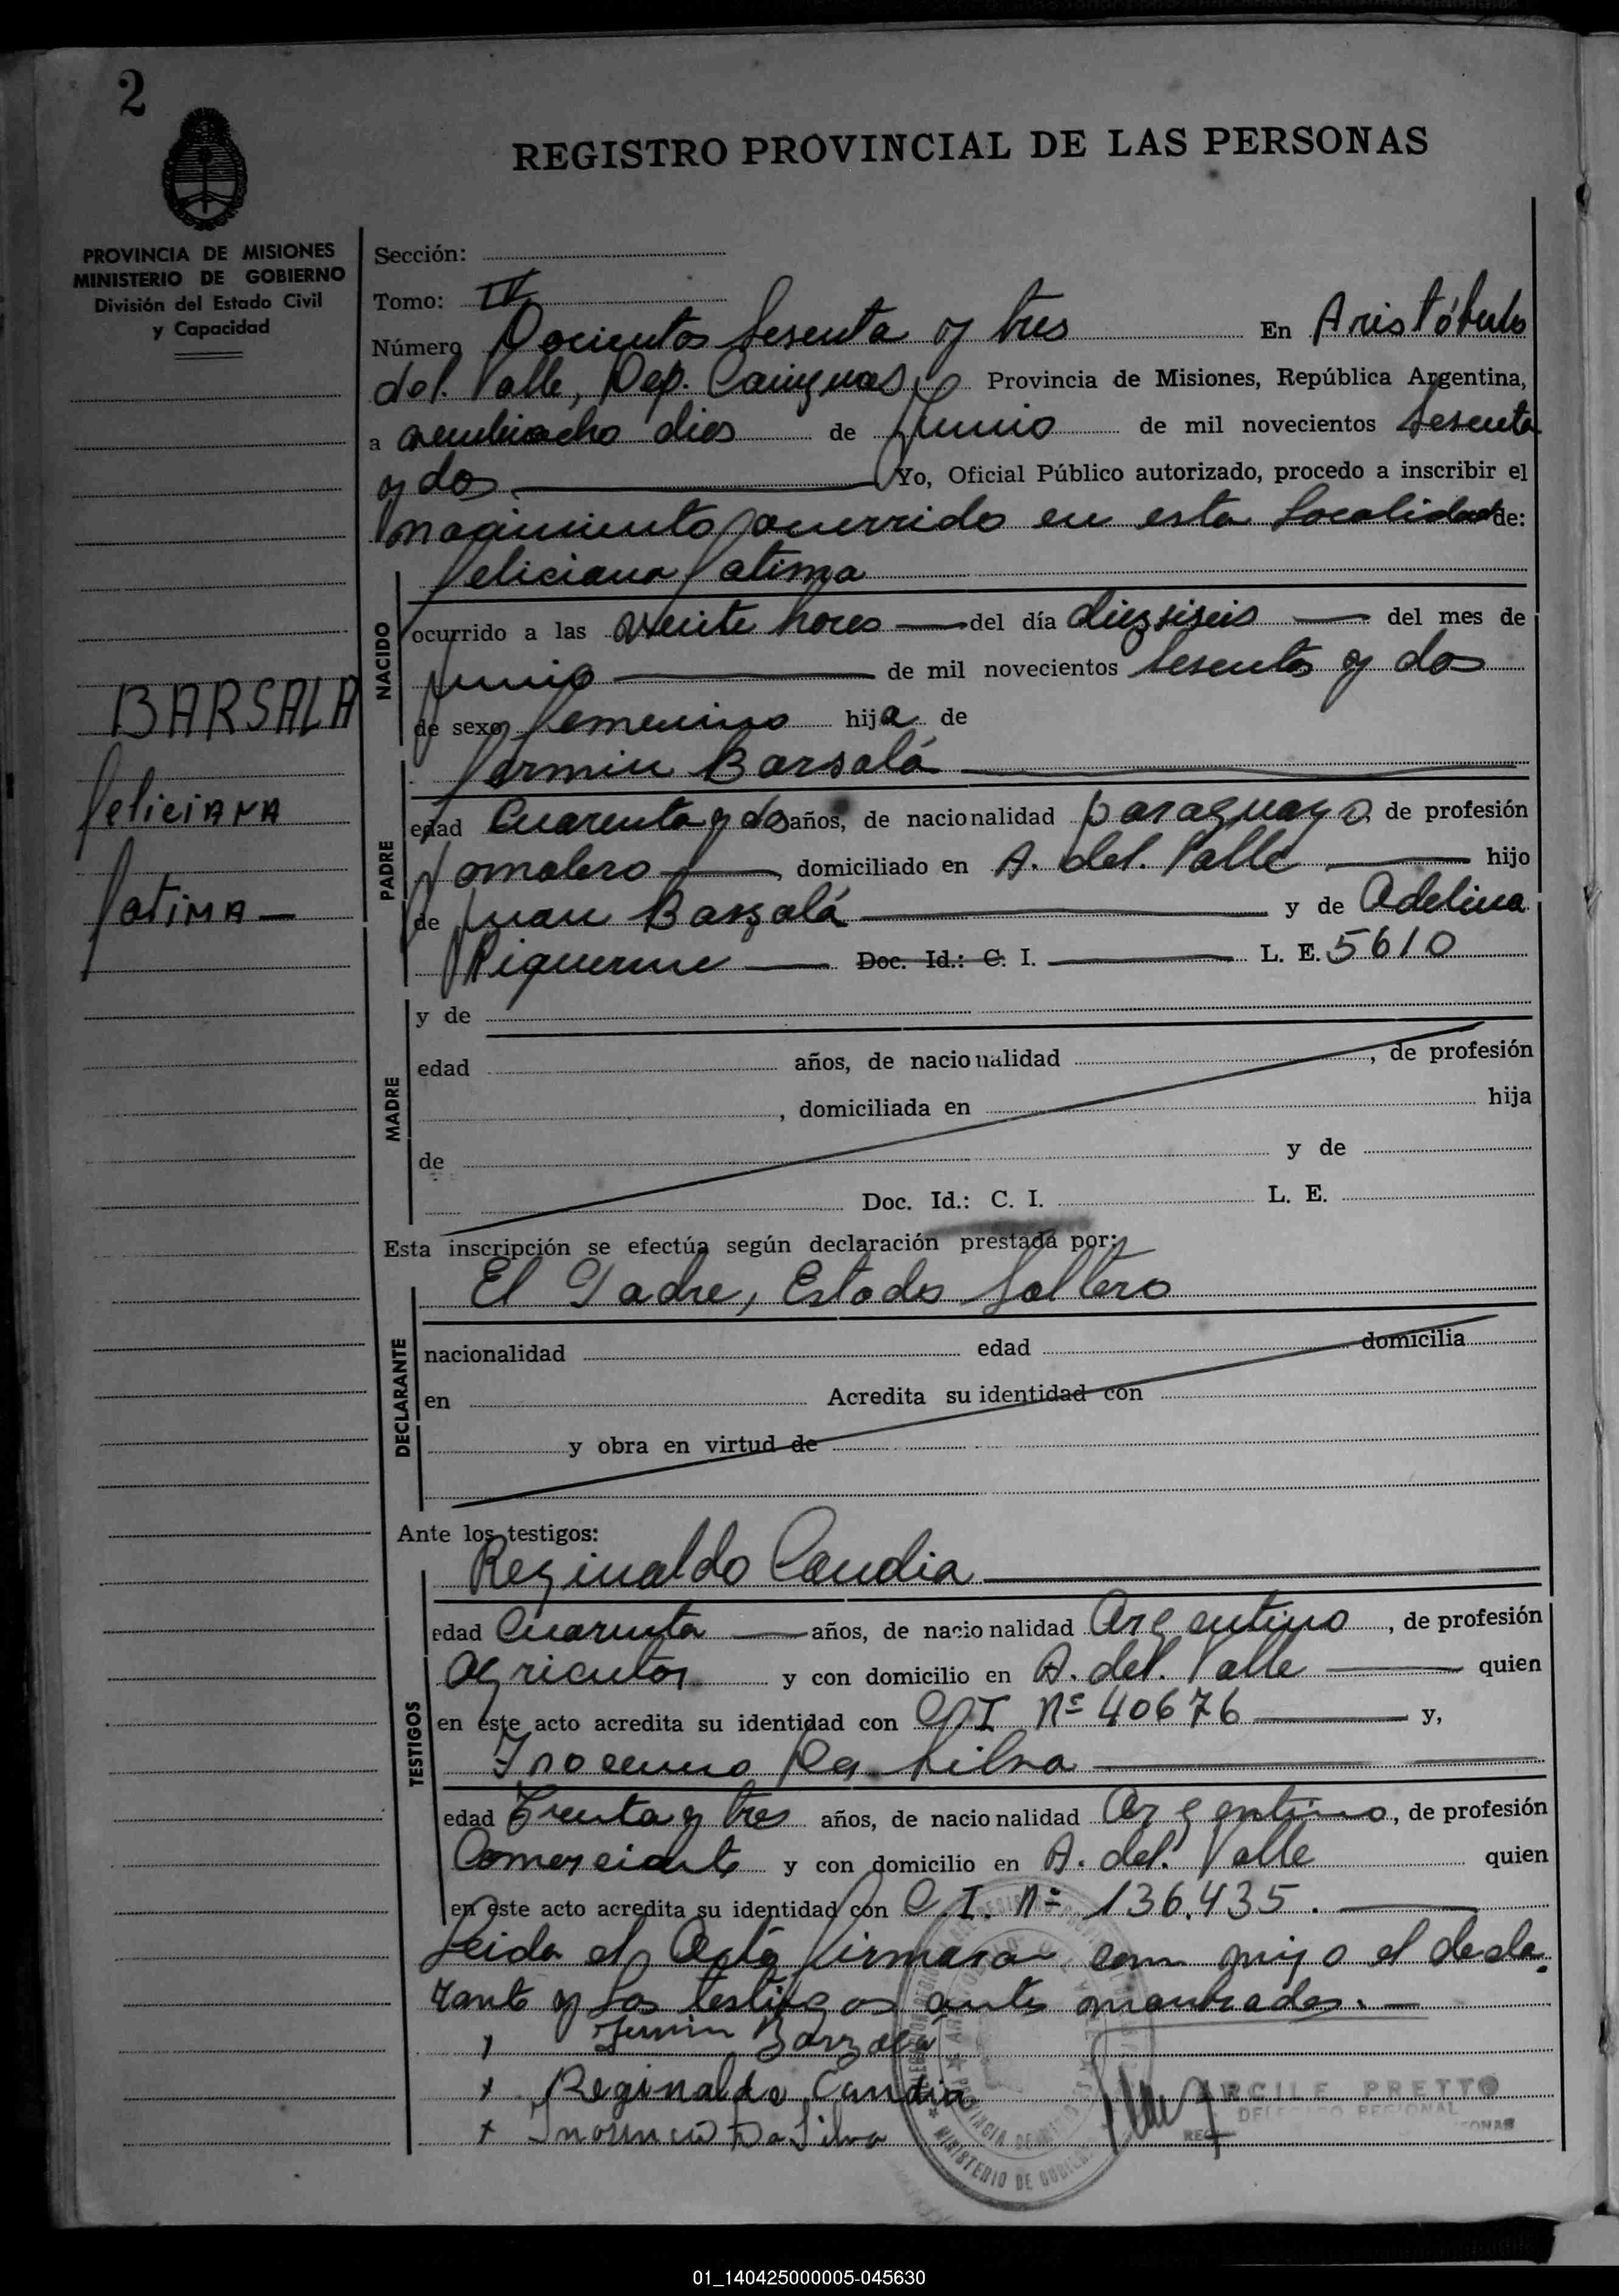 2
REGISTRO PROVINCIAL DE LAS PERSONAS
PROVINCIA DE MISIONES
MINISTERIO DE GOBIERNO
División del Estado Civil
y Capacidad
Sección:
Tomo: IV
Número Docientos Sesenta y tres En Aristóbulo
del Valle, Dep. Cainguas, Provincia de Misiones, República Argentina,
a dies de Junio de mil novecientos Sesenta
y dos Yo, Oficial Público autorizado, procedo a inscribir el
nacimiento ocurrido en esta Localidad de:
Feliciana Fatima
BARSALA
Feliciana
Fatima
NACIDO
ocurrido a las veinte hores del día diezsiseis del mes de
Junio de mil novecientos Sesenta y dos
de sexo femenino hija de
PADRE
Fermin Barsalá
edad Cuarenta y dos años, de nacionalidad paraguayo, de profesión
Jornalero, domiciliado en A. del. Valle hijo
de Juan Barzalá y de Adelina
Piquerme Doc. Id.: C. I. L. E. 5610
MADRE
y de
edad años, de nacionalidad , de profesión
, domiciliada en hija
de y de
Doc. Id.: C. I. L. E.
Esta inscripción se efectúa según declaración prestada por:
DECLARANTE
El Padre, Estado Soltero
nacionalidad edad domicilia
en Acredita su identidad con
y obra en virtud de
Ante los testigos:
TESTIGOS
Reginaldo Candia
edad Cuarenta años, de nacionalidad Argentino, de profesión
agricultor y con domicilio en A. del. Valle quien
en este acto acredita su identidad con C I Nº 40676 y,
Da Silva
edad Trenta y tres años, de nacionalidad Argentino, de profesión
Comerciante y con domicilio en A. del. Valle quien
en este acto acredita su identidad con C. I. Nº 136.435.
Leida el Acta firmaran com migo el decla-
rante y los testigos ante
Fermin Barzala
x Reginaldo Candia
x Inosencio Da Silva
ARCILE PRETTO
DELEGADO REGIONAL
MINISTERIO DE GOBIERNO
01_140425000005-045630